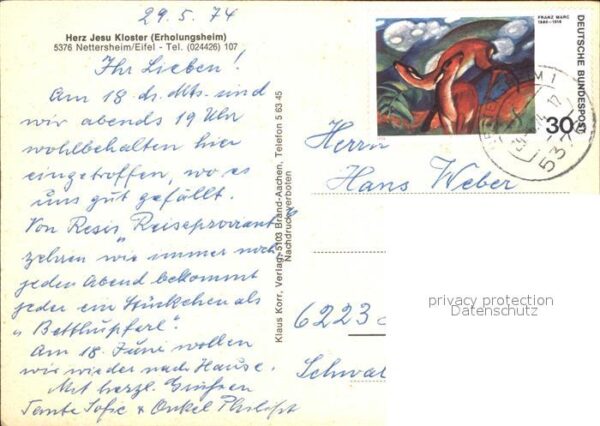 29.5.74
Herz Jesu Kloster (Erholungsheim)
5376 Nettersheim/Eifel - Tel. (024426) 107
Ihr Lieben!
Am 18 ds. Mts. sind
wir abends 19 Uhr
wohlbehalten hier
eingetroffen, wo es
uns gut gefällt.
Von Resis "Reiseproviant"
zehren wir immer noch
jeden Abend bekommt
jeder ein Stückchen als
"Betthupferl".
Am 18. Juni wollen
wir wieder nach Hause.
Mit herzl. Grüßen
Tante Sofie + Onkel Philipp
Klaus Korr, Verlag, 5103 Brand-Aachen, Telefon 5 63 45
Nachdruck verboten
FRANZ MARC
1880-1916
DEUTSCHE BUNDESPOST
30
Herrn
Hans Weber
6223
Schwar
privacy protection
Datenschutz